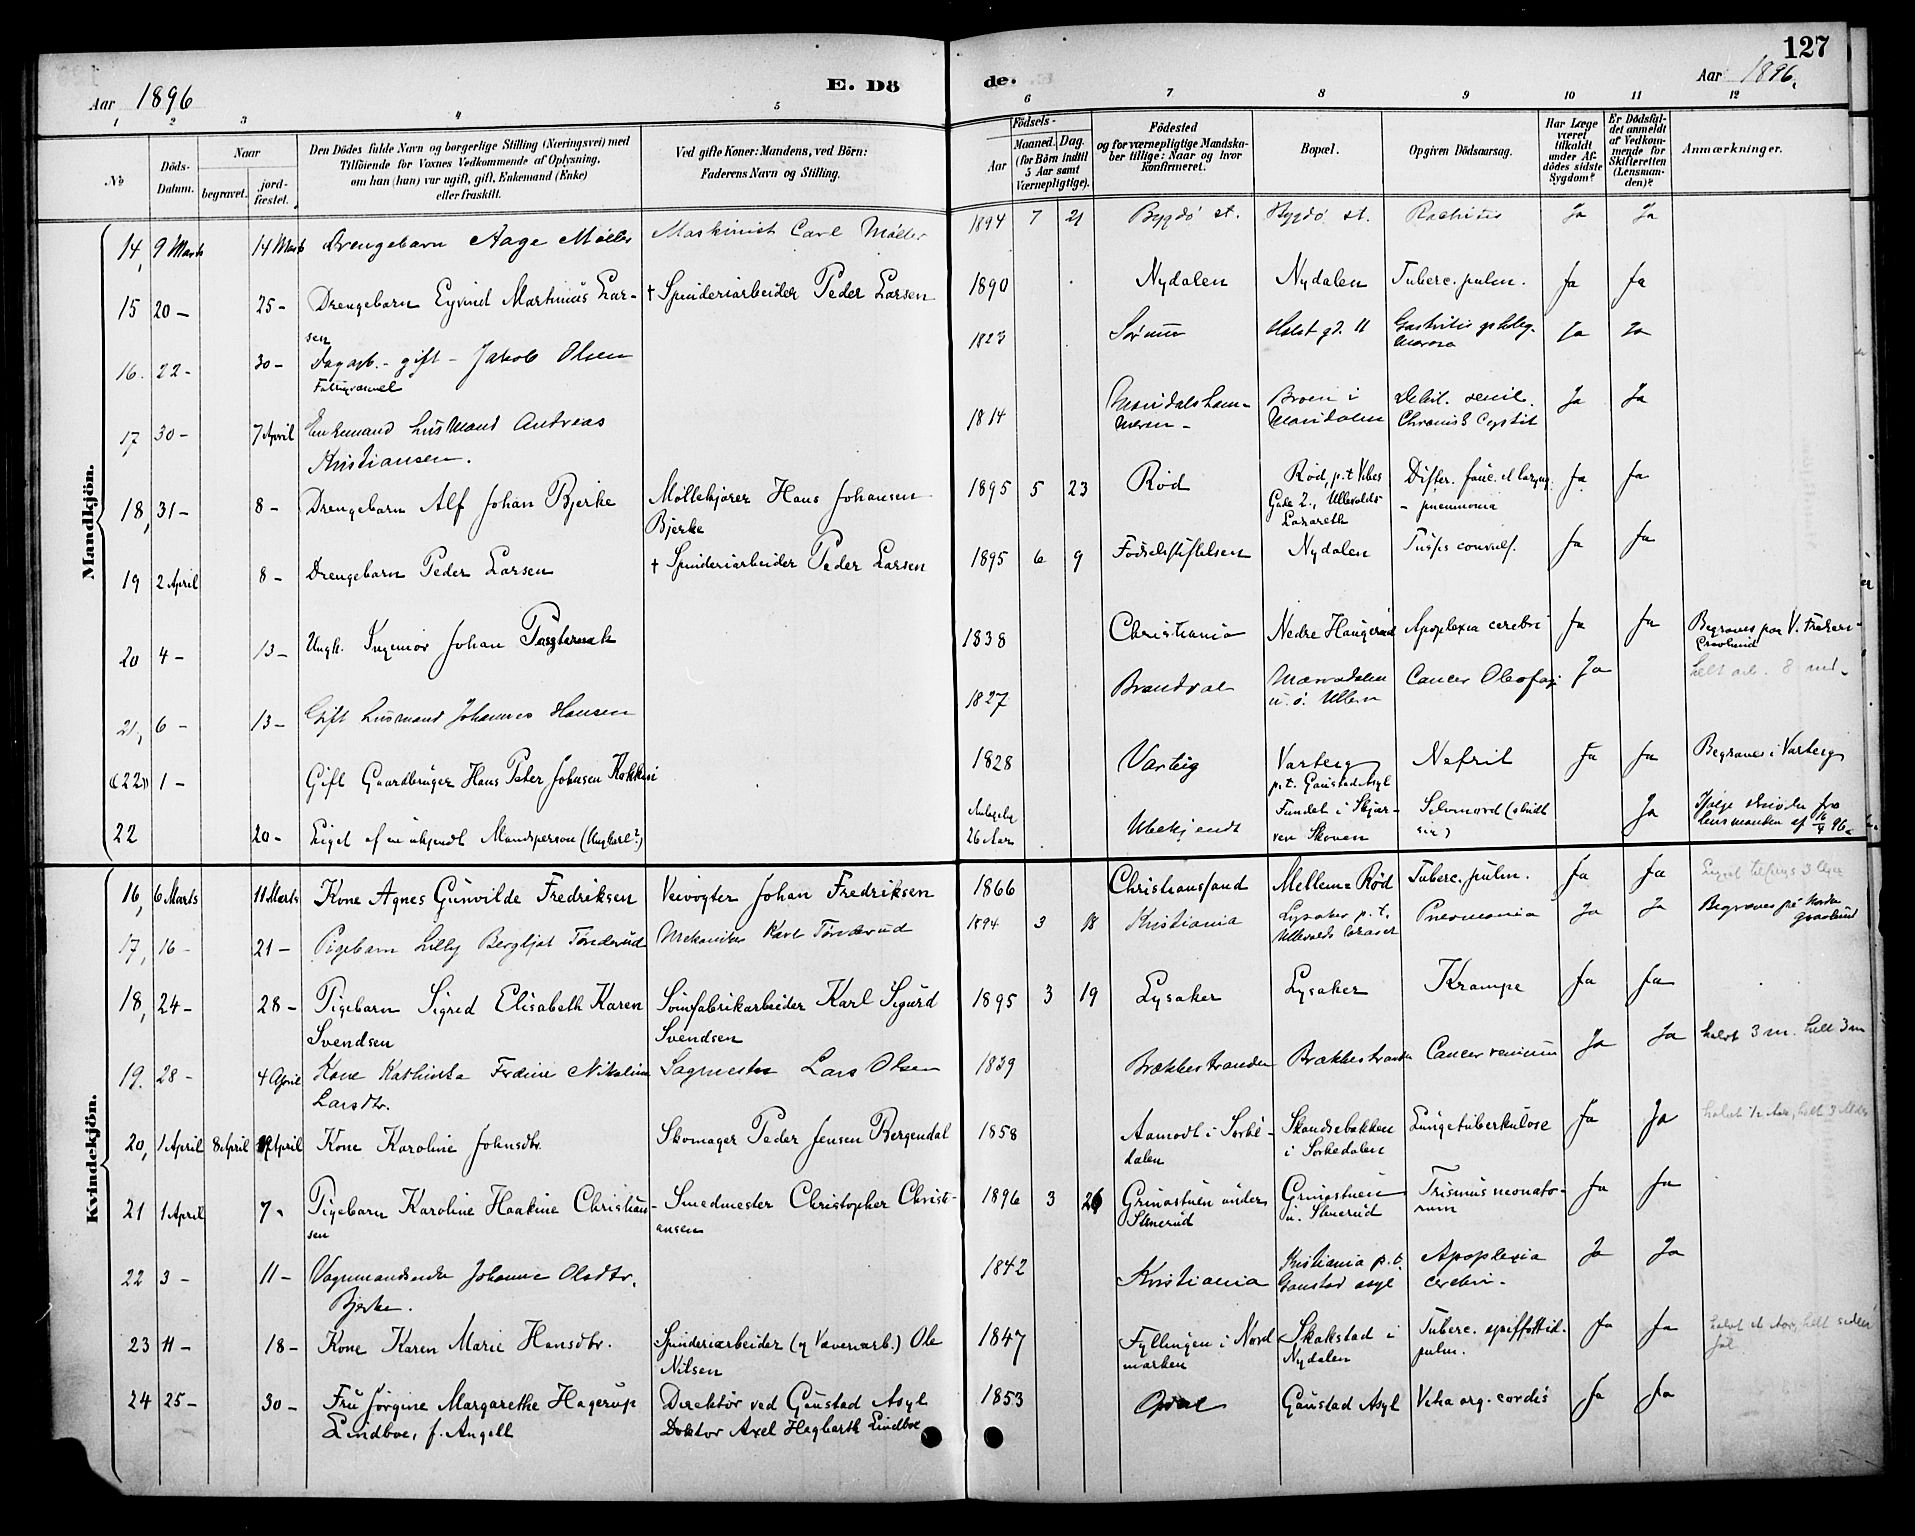 Aar 1896
E. Dö
de.
127
Aar 1896.
1 2 3 4 5 6 7 8 9 10 11 12
№
Döds-Datum.
Naar
begravet.
jord-fæstet.
Den Dödes fulde Navn og borgerlige Stilling (Næringsvei) med
Tilföiende for Voxnes Vedkommende af Oplysning,
om han (hun) var ugift, gift, Enkemand (Enke)
eller fraskilt.
Ved gifte Koner: Mandens, ved Börn:
Faderens Navn og Stilling.
Födsels-
Aar
Maaned. Dag
(for Börn indtil
5 Aar samt
Værnepligtige).
Födested
og for værnepligtige Mandska-
ber tillige: Naar og hvor
konfirmeret.
Bopæl.
Opgiven Dödsaarsag.
Har Læge
været
tilkaldt
under Af-
dödes sidste
Sygdom?
Er Dödsfal-
det anmeldt
af Vedkom-
mende for
Skifteretten
(Lensman-
den)?
Anmærkninger.
Mandkjön.
14, 9 Marts 14 Marts Drengebarn Aage Møller Maskinist Carl Møller 1894 7 21 Bygdö st. Bygdö st. Rachitis Ja Ja
15 20 – 25 – Drengebarn Eyvind Martinius Lar- † Spinderiarbeider Peder Larsen 1890 Nydalen Nydalen Tuberc. pulm. Ja Ja
sen
16. 22 – 30 – Dagarb. – gift – Jakob Olsen 1823 Sørum Holst gd. 11 Gastritis Ja Ja
17 30 – 7 April Enkemand Husmand Andreas 1814 Maridalsham- Broen i Debil. senil. Ja Ja
Kristiansen. meren – Maridalen Chronisk Cystit
18, 31 – 8 – Drengebarn Alf Johan Bjerke Møllekjører Hans Johansen 1895 5 23 Rød Rød, p.t. Vibes Difter. fauc. et laryng. Ja Ja
Bjerke Gade 2., Ullevolds – pneumonia
Lazareth
19 2 April 8 – Drengebarn Peder Larsen † Spinderiarbeider Peder Larsen 1895 6 9 Fødselsstiftelsen Nydalen Tussis convuls. Ja Ja
20 4 – 13 – Ungk. Ingeniør Johan Paszternak 1838 Christiania Nedre Haugerud Apoplexia cerebri Ja Ja Begraves paa V. Frelsers
Gravlund
21, 6 – 13 – Gift Husmand Johannes Hansen 1827 Brandval Mærradalen Cancer Oleofag. Ja
u. ö. Ullern
(22) 1 – Gift Gaardbruger Hans Peter Johnsen Kokkin 1828 Varteig Varteig Nefrit Ja Ja Begraves i Varteig
p.t. Gaustad Asyl
22 20 – Liget af en ukjendt Mandsperson (Ungkarl?) Antagelig Ubekjendt Fundet i Skjær- Selvmord (skudt Ja Ifølge skrivelse fra
26 Aar ven Skoven sig) lensmanden af 16/4 96.
Kvindekjön.
16, 6 Marts 11 Marts Kone Agnes Gunvilde Fredriksen Veivogter Johan Fredriksen 1866 Christiansand Mellem-Rød Tuberc. pulm. Ja Ja
17, 16 – 21 – Pigebarn Lilly Bergljot Tønderud Mekaniker Karl Tønderud 1894 3 18 Kristiania Lysaker p.t. Pneomonia Ja Ja Begraves på Nordre
Ullevolds lazaret gravlund
18, 24 – 28 – Pigebarn Sigrid Elisabeth Karen Sömfabrikarbeider Karl Sigurd 1895 3 19 Lysaker Lysaker Krampe Ja Ja
Svendsen Svendsen
19. 28 – 4 April Kone Kathinka Ferdine Nikoline Sagmester Lars Olsen 1839 Brækkestranden Brækkestranden Cancer renium Ja Ja halvt 3 m. helt 3 m
Larsdtr.
20, 1 April 8 April 19 April Kone Karoline Johnsdtr. Skomager Peder Jensen Bergendal 1858 Aamodt i Sørke- Skandsebakken Lungetuberkulose Ja Ja halvt 1/2 Aar, helt 3 Mdr
dalen i Sørkedalen
21 1 April 7 – Pigebarn Karoline Haakine Christian- Smedmester Christopher Christi- 1896 3 26 Grinastuen under Grinastuen Trismus neonato- Ja Ja
sen ansen Stenerud u. Stenerud rum
22 3 – 11 – Vognmandsenke Johanne Olsdtr. 1842 Kristiania Kristiania p.t. Apoplexia Ja Ja
Bjerke. Gaustad asyl cerebri –
23 11 – 18 – Kone Karen Marie Hansdtr. Spinderiarbeider (og Væveriarb.) Ole 1847 Fyllingen i Nord- Skakstad i Tuberc. Ja Ja
Nilsen marken Nydalen pulm.
24 25 – 30 – Fru Jørgine Margarethe Hagerup Direktør ved Gaustad Asyl 1853 Gaustad Asyl Vitia org. cordis Ja Ja
Lindboe, f. Angell Doktor Axel Hagbarth Lindboe